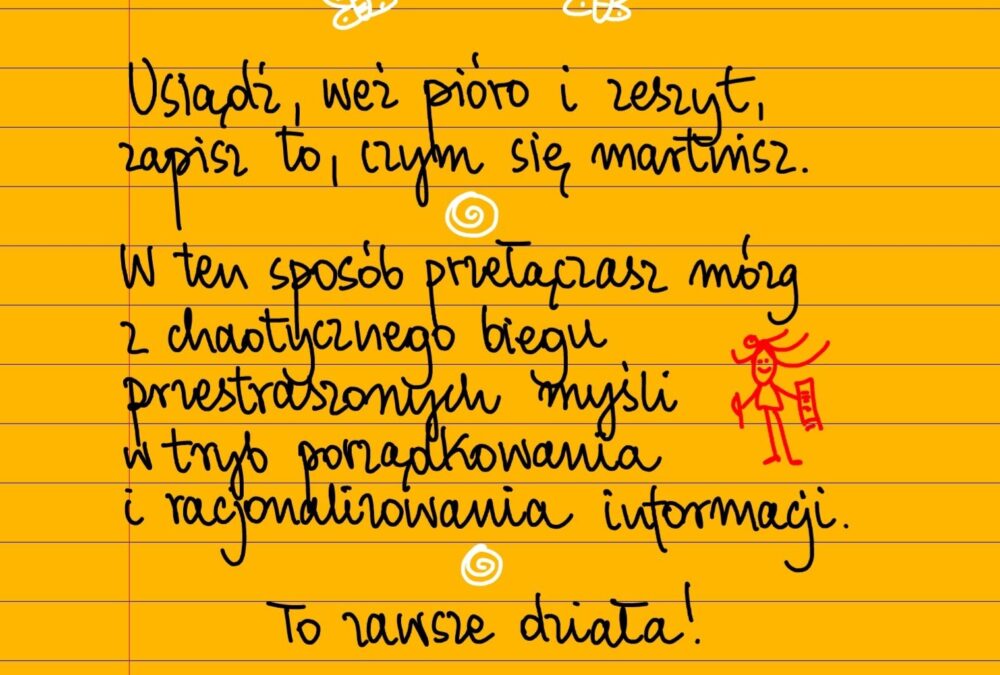 Usiądź, weź pióro i zeszyt,
zapisz to, czym się martwisz.
W ten sposób przełączasz mózg
z chaotycznego biegu
przestraszonych myśli
w tryb porządkowania
i racjonalizowania informacji.
To zawsze działa!